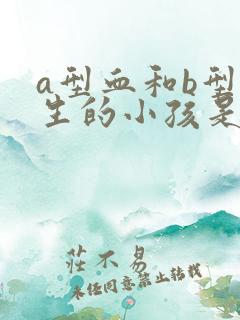 a型血和b型
生的小孩是
莊不易
未经同意禁止转载